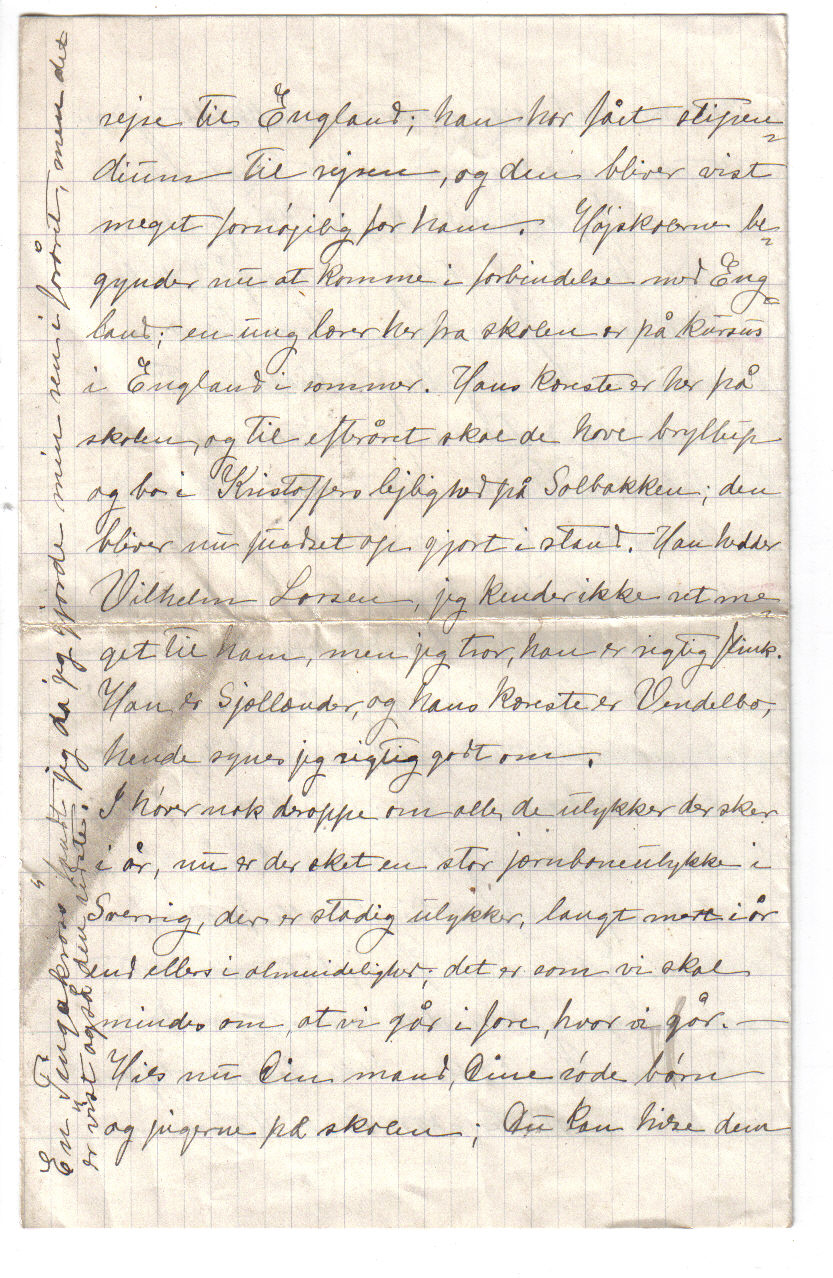 rejse til England; han har fået stipen=
dium til rejsen, og den bliver vist
meget fornøjelig for ham. Højskolerne be=
gynder nu at komme i forbindelse med Eng=
land; en ung lærer her fra skolen er på kursus
i England i sommer. Hans kæreste er her på
skolen, og til efteråret skal de have bryllup
og bo i Kristoffers lejlighed på Solbakken; den
bliver nu pudset op gjort i stand. Han hedder
Vilhelm Larsen, jeg kender ikke ret me=
get til ham, men jeg tror, han er rigtig flink.
Han er Sjællænder, og hans kæreste er Vendelbo,
hende synes jeg rigtig godt om.
I hører nok deroppe om alle de ulykker der sker
i år, nu er der sket en stor jærnbaneulykke i
Sverrig, der er stadig ulykker, langt mere i år
end ellers i almindelighed; det er som vi skal
mindes om, at vi går i fare, hvor vi går. —
Hils nu Din mand, Dine søde børn
og pigerne på skolen; Du kan hilse dem
En "Tingakross" fandt jeg da jeg gjorde min ren i foråret, men det
er vist også den sidste.